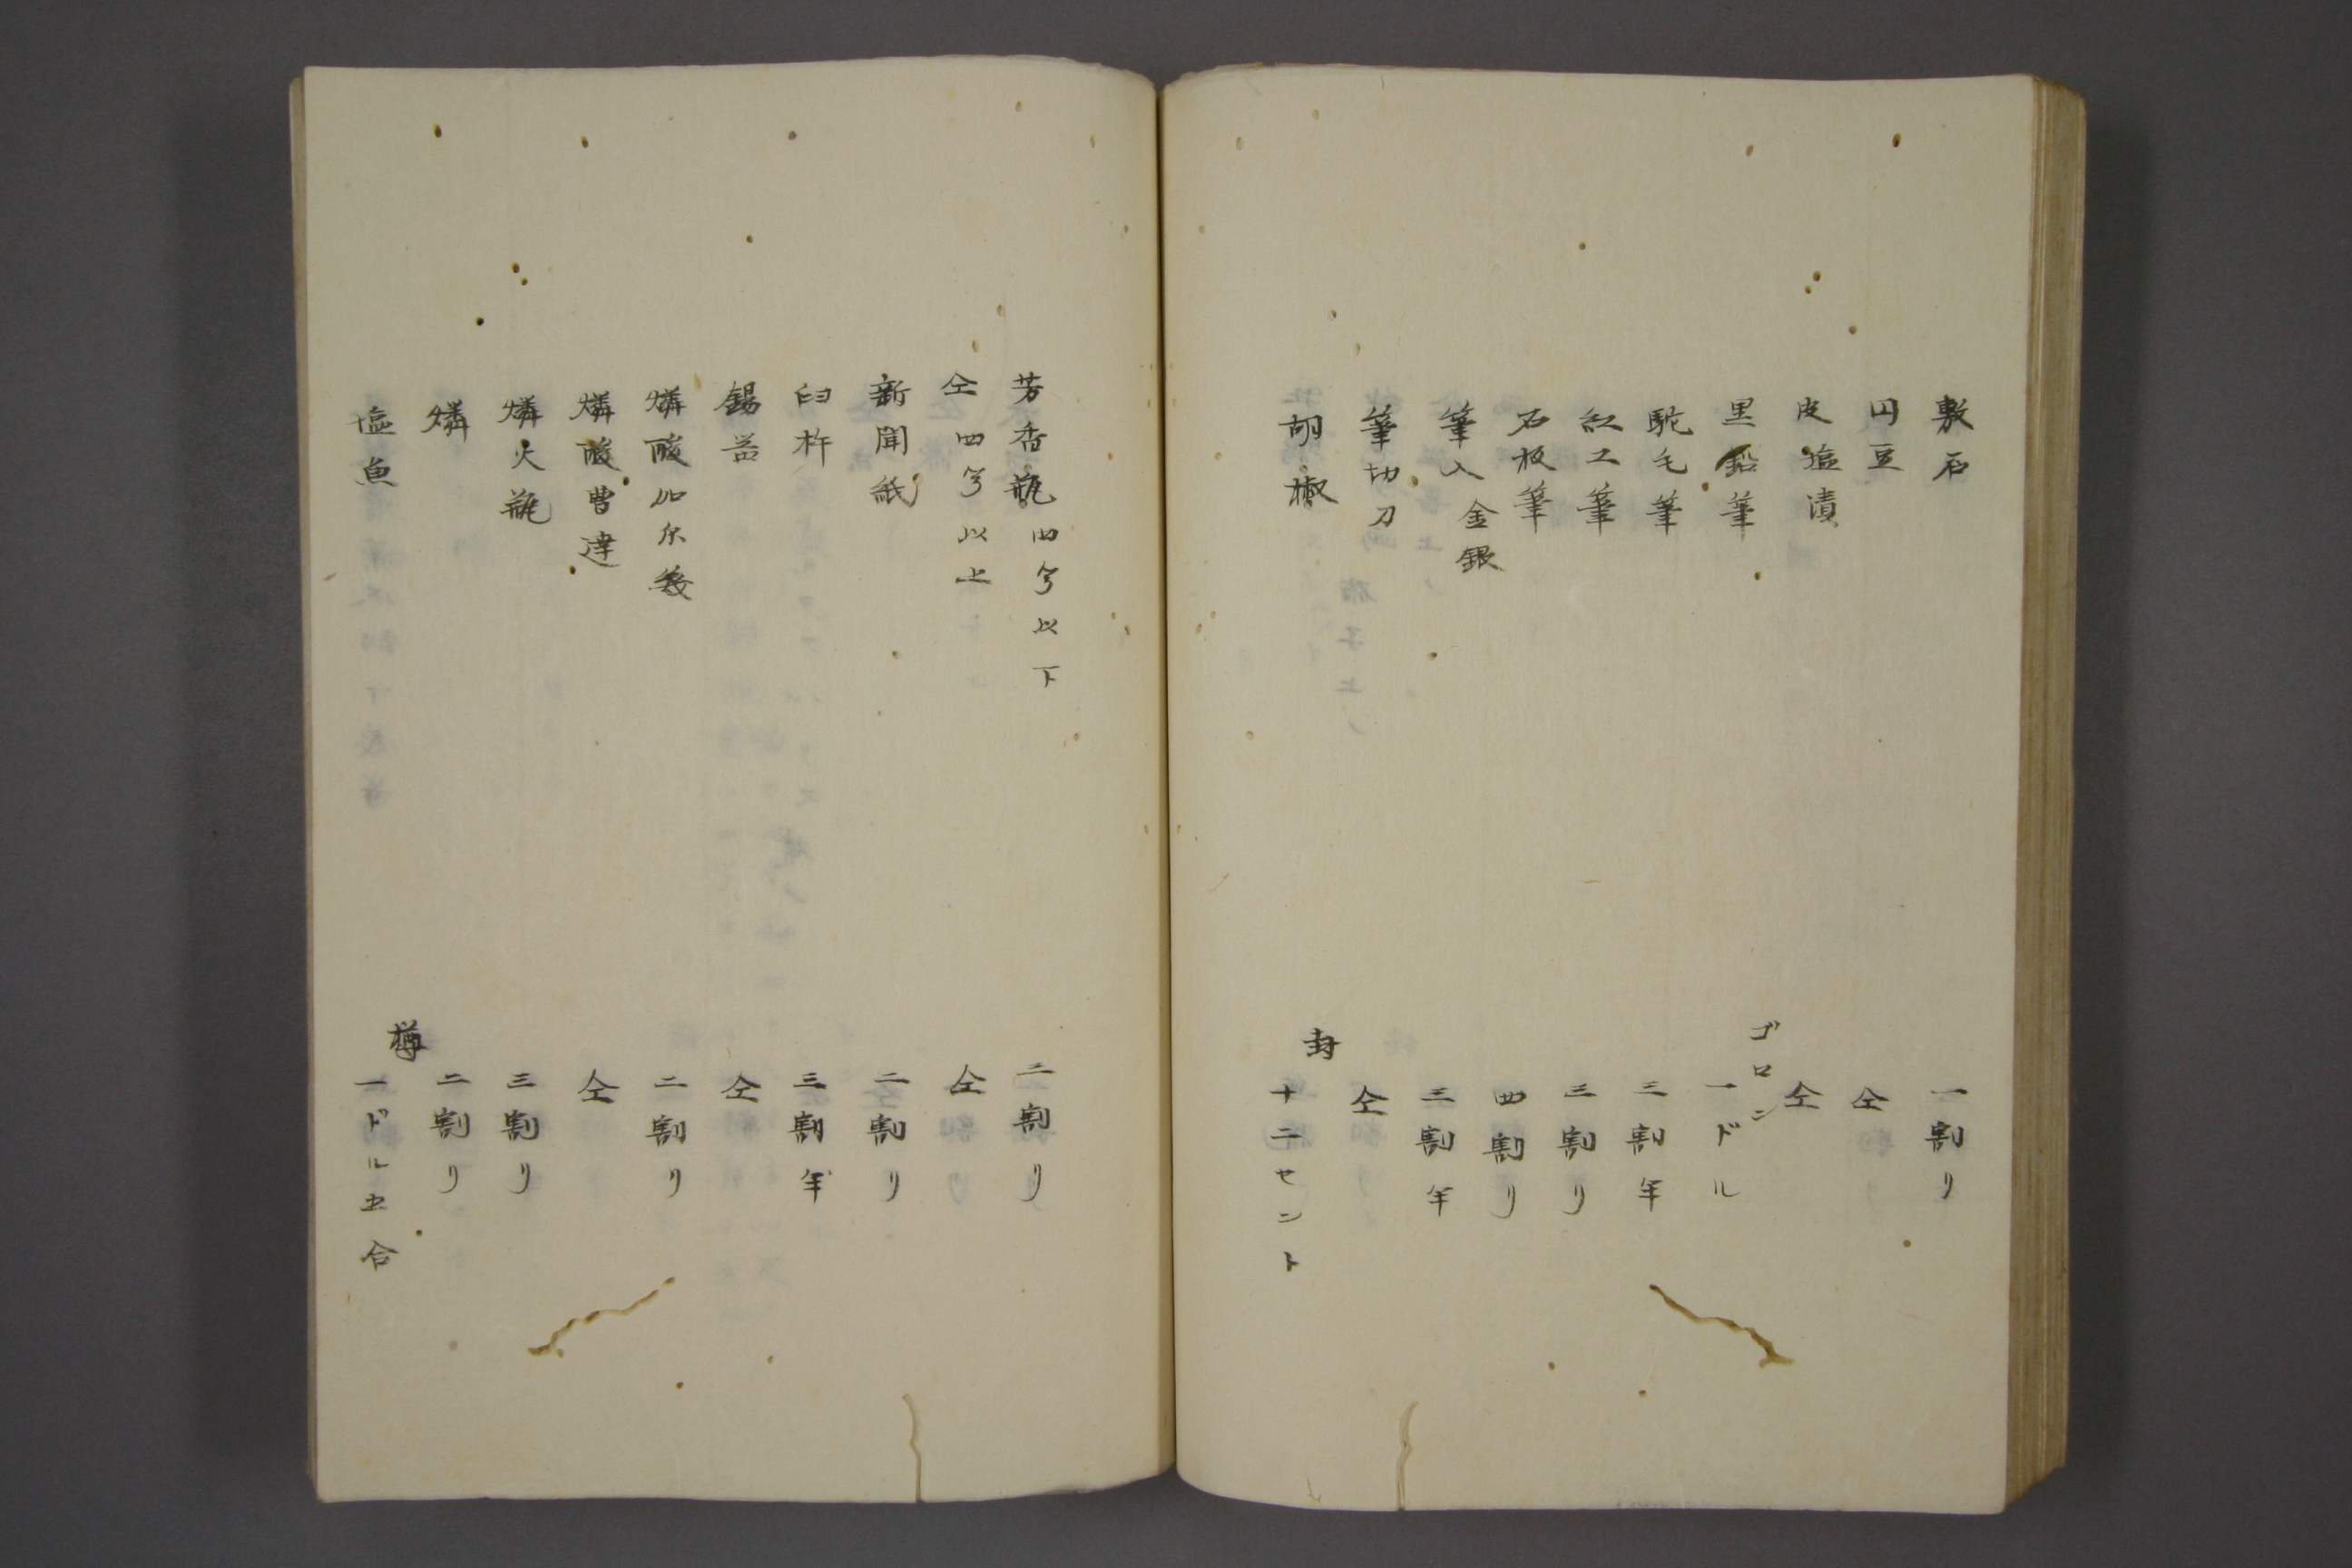 敷石　一割リ
円豆　仝
皮塩漬　仝
黒鉛筆　ゴロン一ドル
駝毛筆　三割半
紅工筆　三割リ
石板筆　四割リ
筆入金銀　三割半
筆切刀　仝
胡椒　封十二セント
芳香瓶四穹以下　二割リ
仝四穹以上　仝
新聞紙　二割リ
臼杵　三割半
錫器　仝
燐酸加尔幾　二割リ
燐酸曹達　仝
燐火瓶　三割リ
燐　二割リ
塩魚　樽一ドル五合